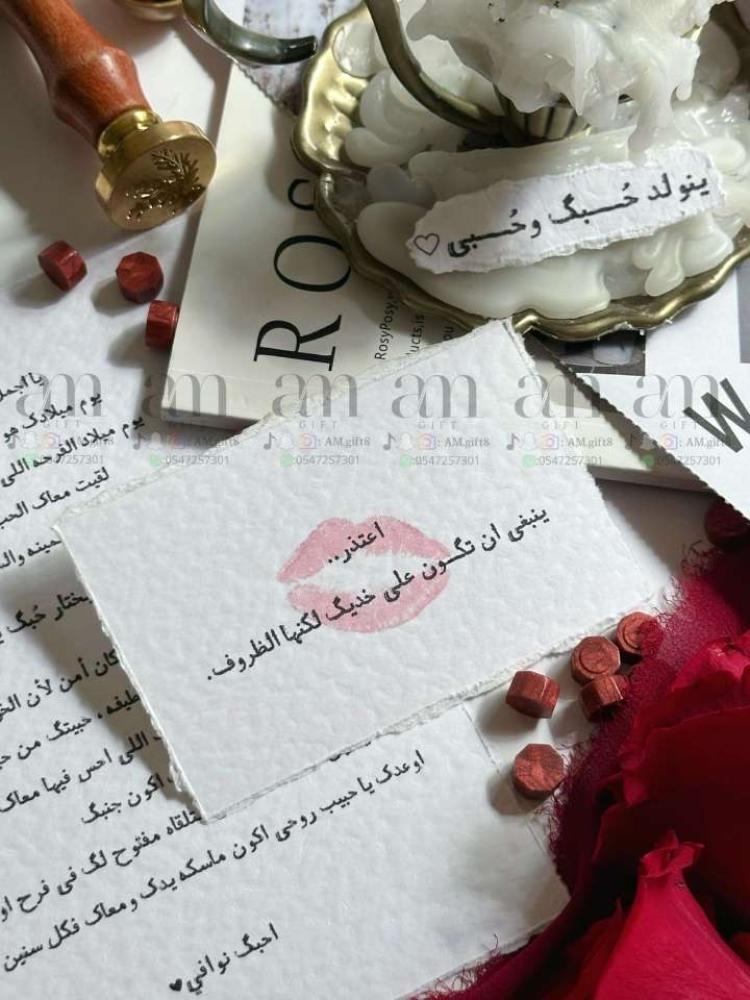 ينولد حُبگ وحُبي ♡
ROS
RosyPosy
ucts,is
ou
W
am am am am am am am
GIFT GIFT GIFT GIFT GIFT GIFT
: AM.gift8 : AM.gift8 : AM.gift8 : AM.gift8 : AM.gift8
:0547257301 :0547257301 :0547257301 :0547257301 :0547257301
يا اجمل
يوم ميلادك هو
يوم ميلاد الفرحه اللي
لقيت معاك الحب
اعتذر..
ينبغي ان تگون على خديگ لگنها الظروف.
ختار حُبگ
كان أمن لأن
طيفه، حبيتگ من
اللي احس فيها معاك
اكون جنبگ
تلقاه مفتوح لگ في فرح او
اوعدك يا حبيب روحي اكون ماسكه يدك ومعاك فكل سنين
احبگ نوافي♥